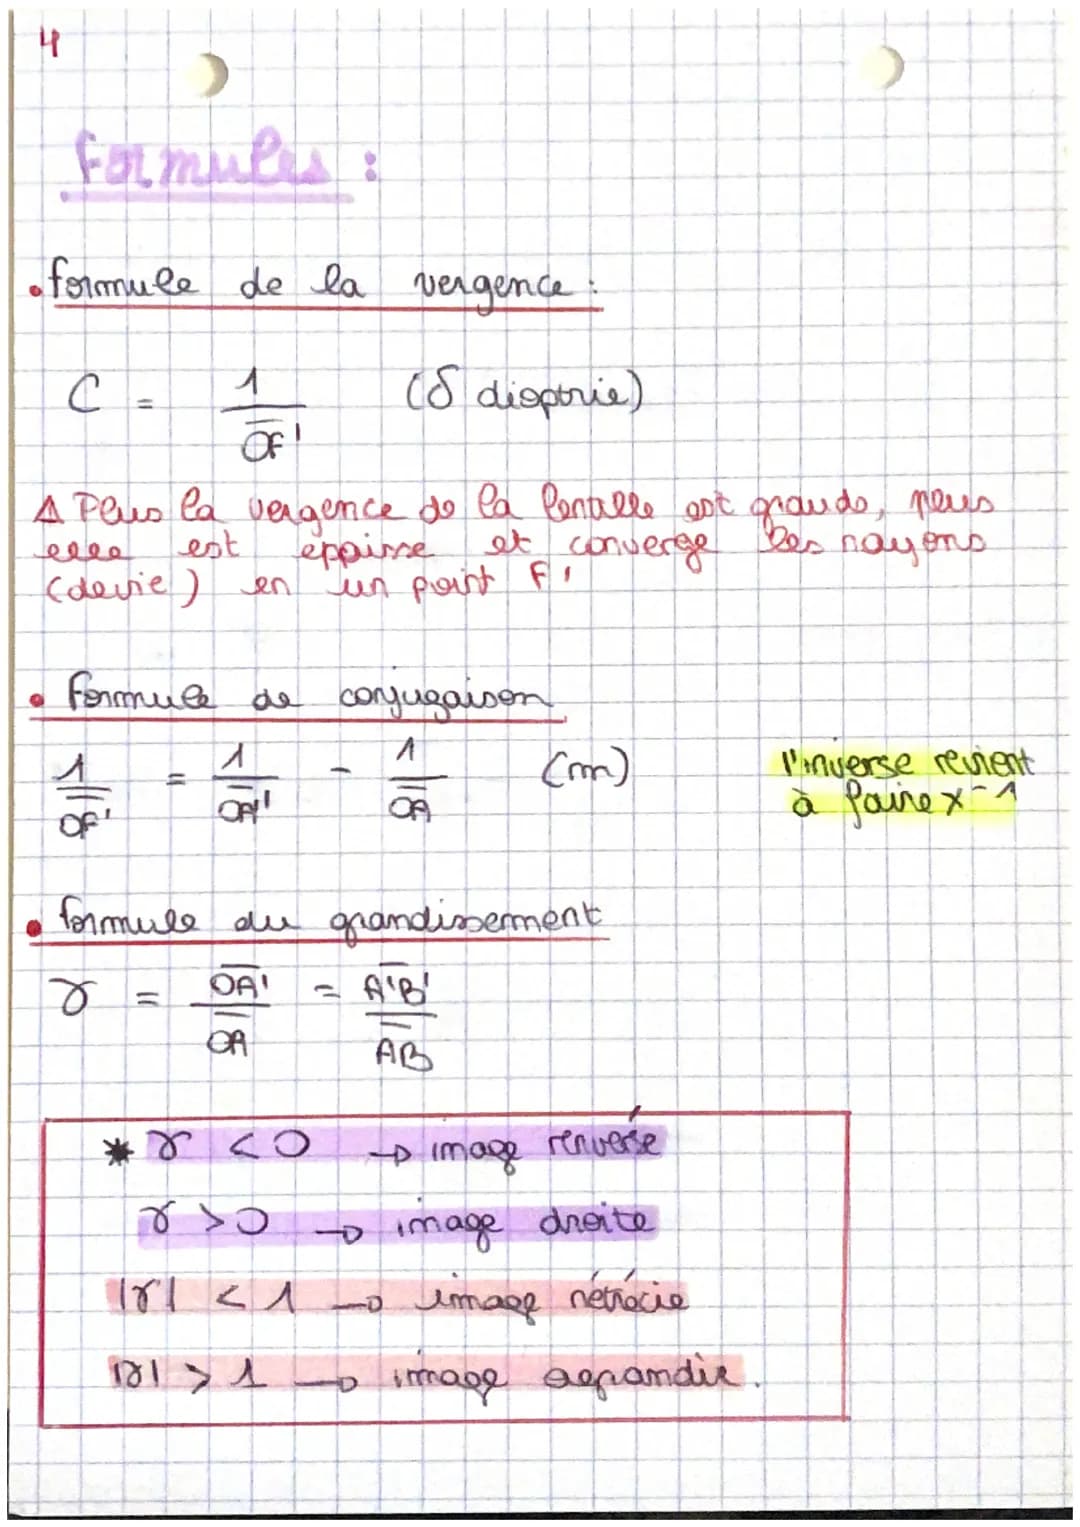 4
formules :
• formule de la vergence :
C = 1/OF' (δ dioptrie)
⚠ Plus la vergence de la lentille est grande, plus
elle est eppaisse et converge les rayons
(devie) en un point F'
• formule de conjugaison
1/OF' = 1/OA' - 1/OA (m) l'inverse revient
à faire x⁻¹
• formule du grandissement
γ = OA'/OA = A'B'/AB
* γ < 0 → image renversé
γ > 0 → image droite
|γ| < 1 → image rétrécie
|γ| > 1 → image agrandie.